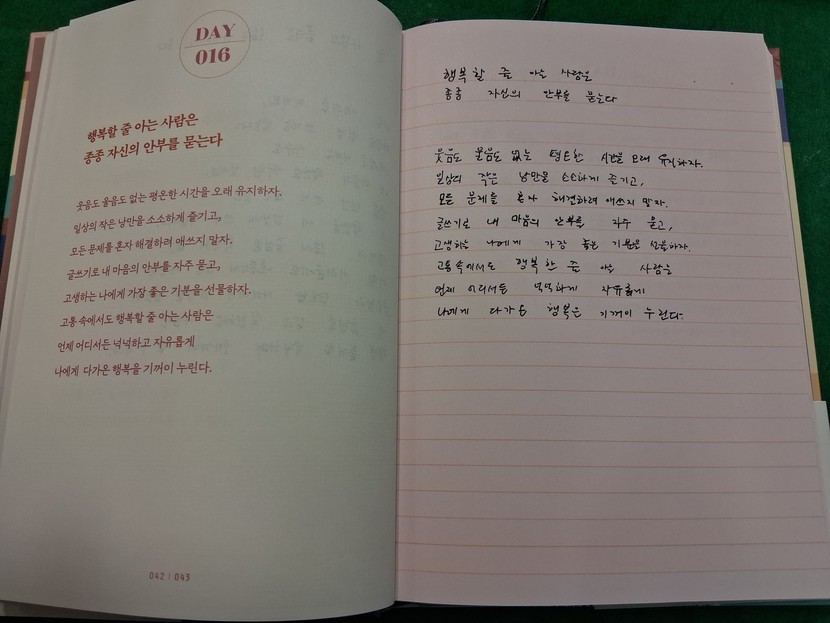 DAY
016
행복할 줄 아는 사람은
종종 자신의 안부를 묻는다
웃음도 울음도 없는 평온한 시간을 오래 유지하자.
일상의 작은 낭만을 소소하게 즐기고,
모든 문제를 혼자 해결하려 애쓰지 말자.
글쓰기로 내 마음의 안부를 자주 묻고,
고생하는 나에게 가장 좋은 기분을 선물하자.
고통 속에서도 행복할 줄 아는 사람은
언제 어디서든 넉넉하고 자유롭게
나에게 다가온 행복을 기꺼이 누린다.
042 / 043
행복할 줄 아는 사람은
종종 자신의 안부를 묻는다
웃음도 울음도 없는 평온한 시간을 오래 유지하자.
일상의 작은 낭만을 소소하게 즐기고,
모든 문제를 혼자 해결하려 애쓰지 말자.
글쓰기로 내 마음의 안부를 자주 묻고,
고생하는 나에게 가장 좋은 기분을 선물하자.
고통 속에서도 행복한 줄 아는 사람은
언제 어디서든 넉넉하게 자유롭게
나에게 다가온 행복은 기꺼이 누린다.